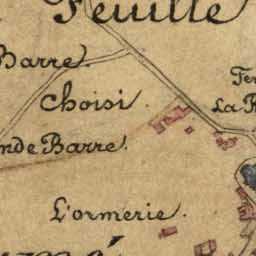 Feuille
Barre.
Choisi.
nde Barre.
L'ormerie.